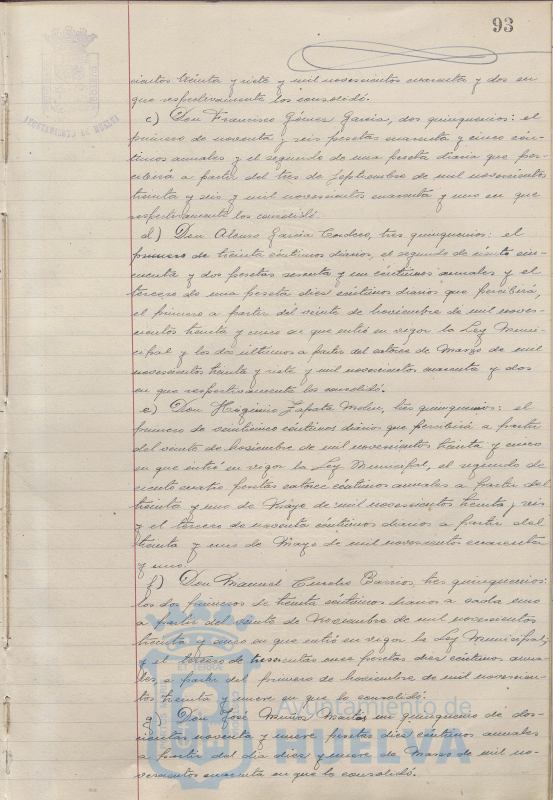 93
AYUNTAMIENTO DE HUELVA
cientos treinta y siete y mil novecientos cuarenta y dos en
que respectivamente los consolidó.
c) Don Francisco Gómez García, dos quinquenios: el
primero de noventa y seis pesetas cuarenta y cinco cén-
timos anuales y el segundo de una peseta diaria que per-
cibirá a partir del tres de Septiembre de mil novecientos
treinta y seis y mil novecientos cuarenta y uno en que
respectivamente los consolidó.
d) Don Alonso García Cordero, tres quinquenios: el
primero de treinta céntimos diarios, el segundo de ciento cin-
cuenta y dos pesetas sesenta y un céntimos anuales y el
tercero de una peseta diez céntimos diarios que percibirá,
el primero a partir del veinte de noviembre de mil noves-
cientos treinta y cinco en que entró en vigor la Ley Muni-
cipal y los dos últimos a partir del catorce de Marzo de mil
novecientos treinta y siete y mil novecientos cuarenta y dos
en que respectivamente los consolidó.
e) Don Higinio Zapata tres quinquenios: el
primero de veinticinco céntimos diarios que percibirá a partir
del veinte de noviembre de mil novecientos treinta y cinco
en que entró en vigor la Ley Municipal, el segundo de
ciento cuatro pesetas catorce céntimos anuales a partir del
treinta y uno de Mayo de mil novecientos treinta y seis
y el tercero de noventa céntimos diarios a partir del
treinta y uno de Mayo de mil novecientos cuarenta
y uno.
f) Don Manuel Barrios, tres quinquenios:
los dos primeros de treinta céntimos diarios a cada uno
a partir del veinte de Noviembre de mil novecientos
treinta y cinco en que entró en vigor la Ley Municipal,
y el tercero de trescientas once pesetas diez céntimos anua-
les, a partir del primero de noviembre de mil novecien-
tos treinta y nueve en que lo consolidó.
g) Don José Muñoz un quinquenio de dos-
cientos noventa y nueve pesetas diez céntimos anuales
a partir del día diez y nueve de Marzo de mil no-
vecientos cuarenta en que lo consolidó.
Ayuntamiento de
HUELVA